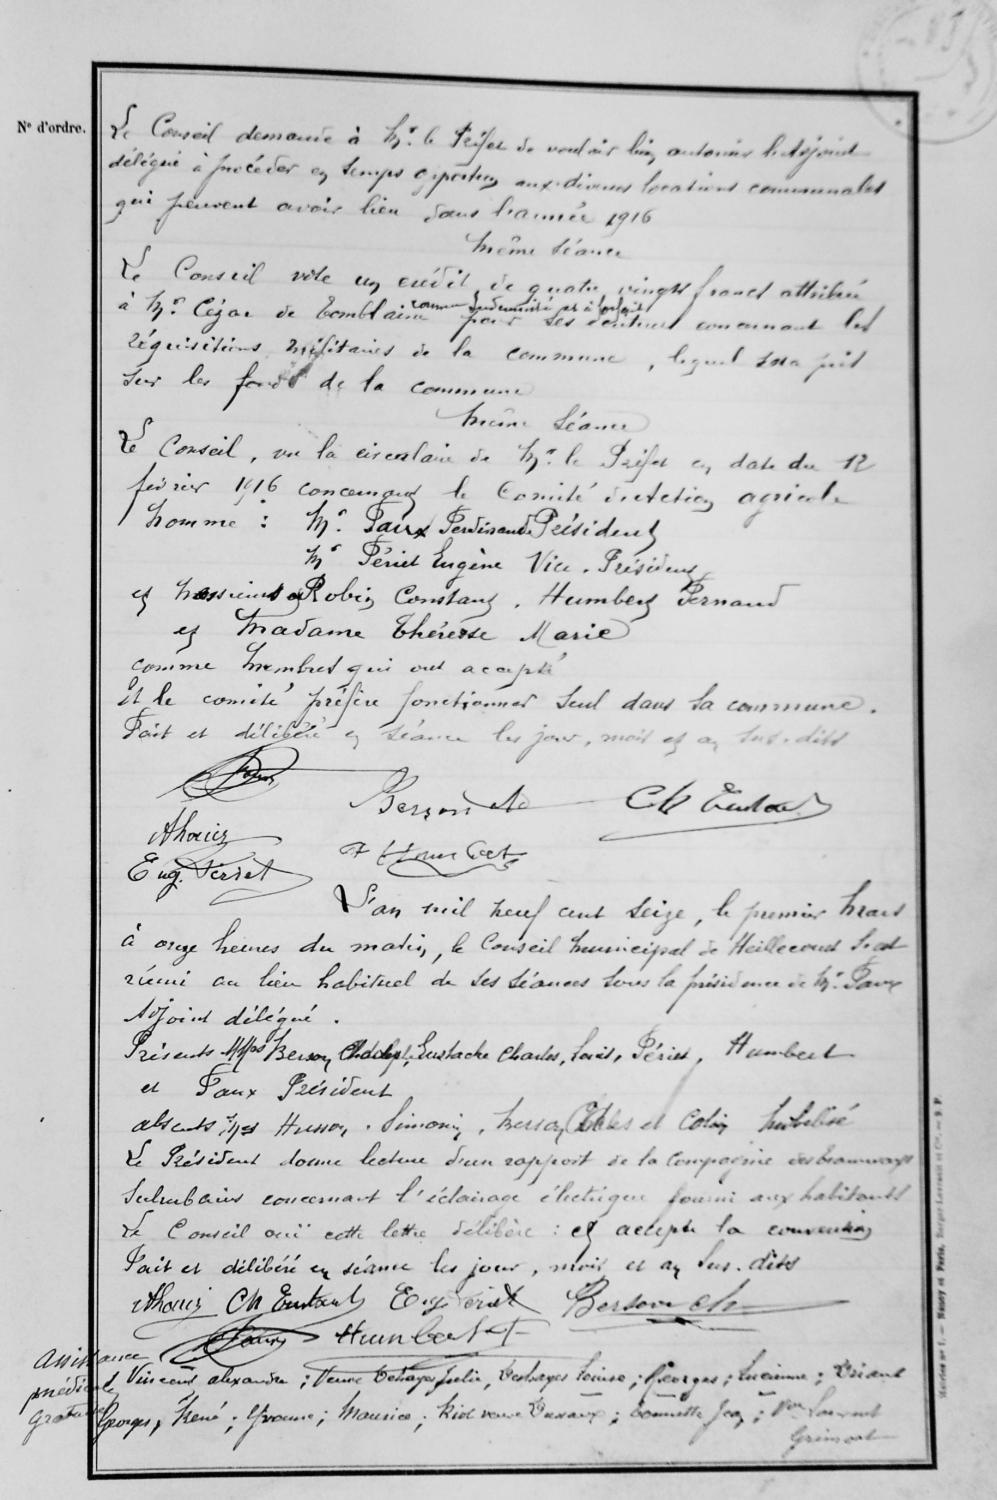 N° d'ordre.
Le Conseil demande à Mr. le Préfet de vouloir bien autoriser l'adjoint
délégué à procéder en temps opportun aux diverses locations communales
qui peuvent avoir lieu dans l'année 1916
Même Séance
Le Conseil vote un crédit de quatre vingts francs attribué
à Mr. Cézar de Tomblaine comme indemnité pour ses concernant les
réquisitions militaires de la commune, lequel sera pris
sur les fonds de la commune
Même Séance
Le Conseil, vu la circulaire de Mr. le Préfet en date du 12
février 1916 concernant le Comité d'action agricole
Nomme : Mr. Faux Ferdinand Président
Mr Périet Eugène Vice-Président
et Messieurs Robin Constant, Humbert Fernand
et Madame Thérèse Marie
comme Membres qui ont accepté
Et le comité préfère fonctionner seul dans sa commune.
Fait et délibéré en séance les jour, mois et an sus-dits
Faux Berson Ch Ch Eustache
Eug. Périet F Humbert
L'an mil neuf cent seize, le premier Mars
à onze heures du matin, le Conseil Municipal de Heillecourt s'est
réuni au lieu habituel de ses séances sous la présidence de Mr. Faux
Adjoint délégué.
Présents MMrs Berson, Eustache Charles, Périet, Humbert
et Faux Président
absents Mrs Husson, Simonin, Berson et Colin Mobilisé
Le Président donne lecture d'un rapport de la Compagnie des tramways
Suburbains concernant l'éclairage électrique fourni aux habitants
Le Conseil ouï cette lettre délibère : et accepte la convention
Fait et délibéré en séance les jour, mois et an sus-dits
Ch Eustache Eug Périet Berson Ch
Faux Humbert F
Assistance
médicale
Gratuite
Vincent alexandre ; Veuve Julie, Louise ; Georges ; Lucienne ;
Georges, René ; Yvonne ; Maurice ; veuve ; ;